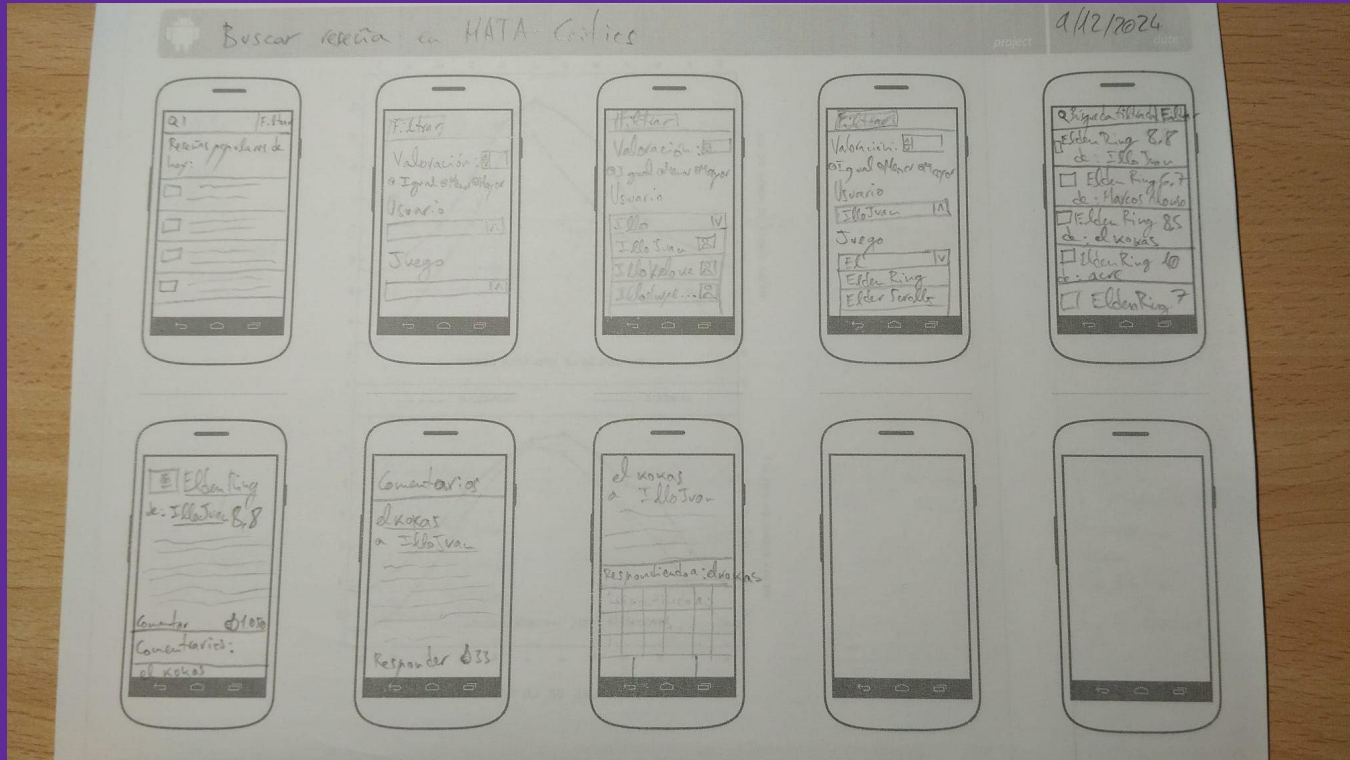 Buscar reseña en MATA-Critics
project
9/12/2024
date
Filtrar
Reseñas populares de
hoy:
Filtrar
Valoración:
Igual Menor Mayor
Usuario
Juego
Filtrar
Valoración:
Igual Menor Mayor
Usuario
Illo
IlloJuan
Filtrar
Valoración:
Igual Menor Mayor
Usuario
IlloJuan
Juego
El
Elden Ring
Elder Scrolls
Búsqueda filtrada Filtrar
Elden Ring 8,8
de: IlloJuan
Elden Ring 6,7
de: Marcos Alonso
Elden Ring 8,5
de: el xokas
Elden Ring 10
de:
Elden Ring 7
Elden Ring
de: IlloJuan 8,8
Comentar
Comentarios:
el xokas
Comentarios
el xokas
a IlloJuan
Responder 33
el xokas
a IlloJuan
Respondiendo a: el xokas